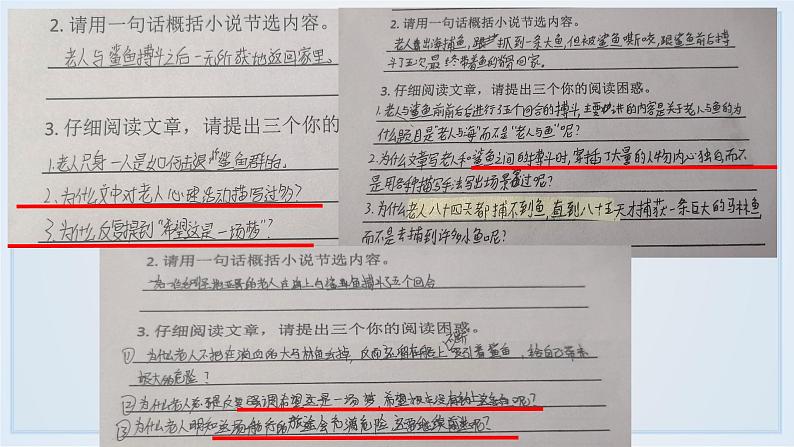 2. 请用一句话概括小说节选内容。
老人与鲨鱼搏斗之后一无所获地返回家里。
3. 仔细阅读文章，请提出三个你的
1.老人只身一人是如何击退鲨鱼群的。
2.为什么文中对老人心理活动描写过多？
3.为什么反复提到“希望这是一场梦”？
2. 请用一句话概括小说节选内容。
老人出海捕鱼，抓到一条大鱼，但被鲨鱼嘶咬，跟鲨鱼前后搏
斗了五次，最终带着鱼的骨回家。
3. 仔细阅读文章，请提出三个你的阅读困惑。
1.老人与鲨鱼前前后后进行了五个回合的搏斗，主要讲的内容是关于老人与鱼的为
什么题目是“老人与海”而不是“老人与鱼”呢？
2.为什么文章写老人和鲨鱼之间的搏斗时，穿插了大量的人物内心独白而不
是用各种描写手法写出场景过呢？
3.为什么老人八十四天都捕不到鱼，直到八十五天才捕获一条巨大的马林鱼
而不是去捕到许多小鱼呢？
2. 请用一句话概括小说节选内容。
的老人在海上与鲨鱼搏斗了五个回合
3. 仔细阅读文章，请提出三个你的阅读困惑。
① 为什么老人不把在流血的大马林鱼丢掉，反而还留在船上不断吸引着鲨鱼，给自己带来
极大的危险？
② 为什么老人总是反复强调希望这是一场梦，希望
③ 为什么老人明知这场航行的旅途会充满危险 还要继续前进呢？